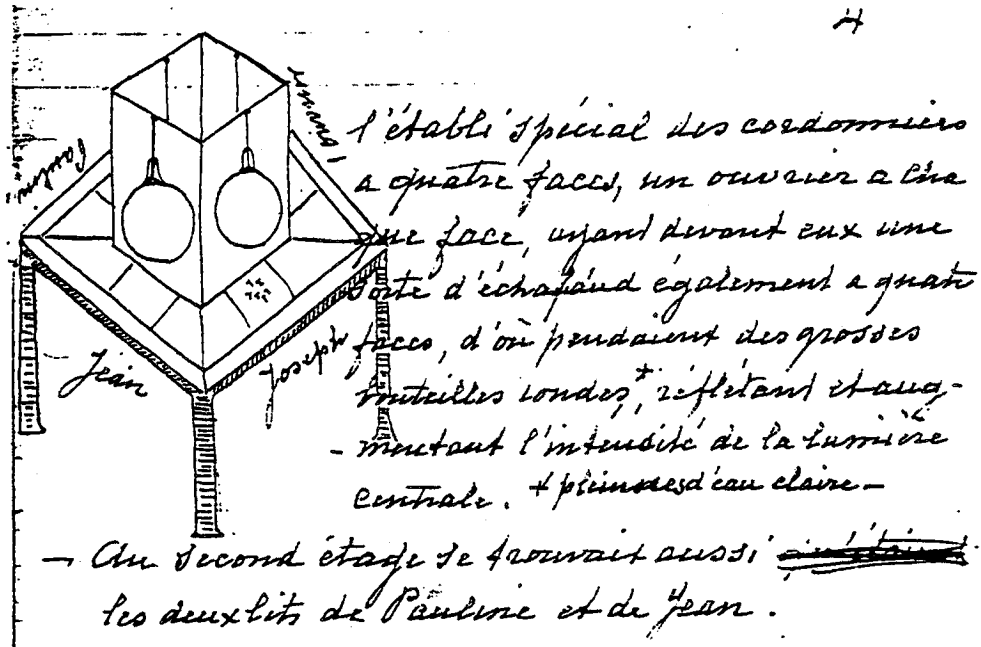 4
l'établi spécial des cordonniers
a quatre faces, un ouvrier a cha
que face, ayant devant eux une
sorte d'échafaud également a quatre
faces, d'où pendaient des grosses
bouteilles rondes,* réflétant et aug-
- mentant l'intensité de la lumière
centrale. * pleines d'eau claire -
- Au second étage se trouvait aussi
les deux lits de Pauline et de Jean.
Pauline
Jean
Joseph